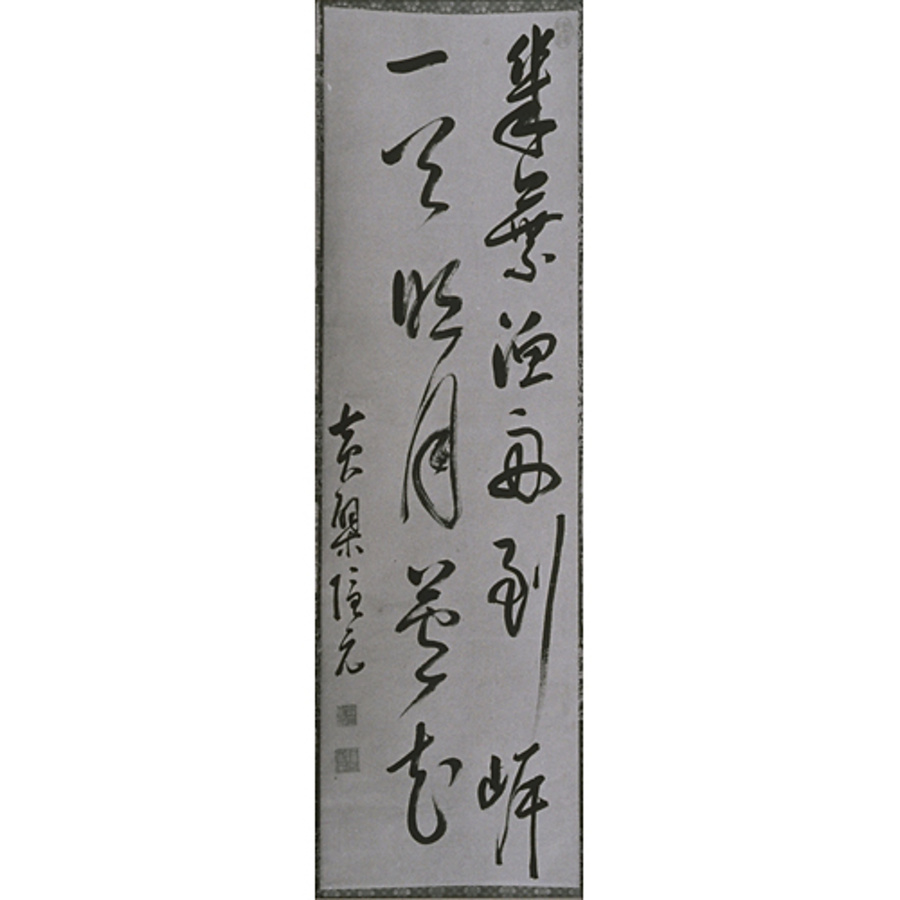 幾葉漁舟到岸
一天明月蘆花
黄檗隠元